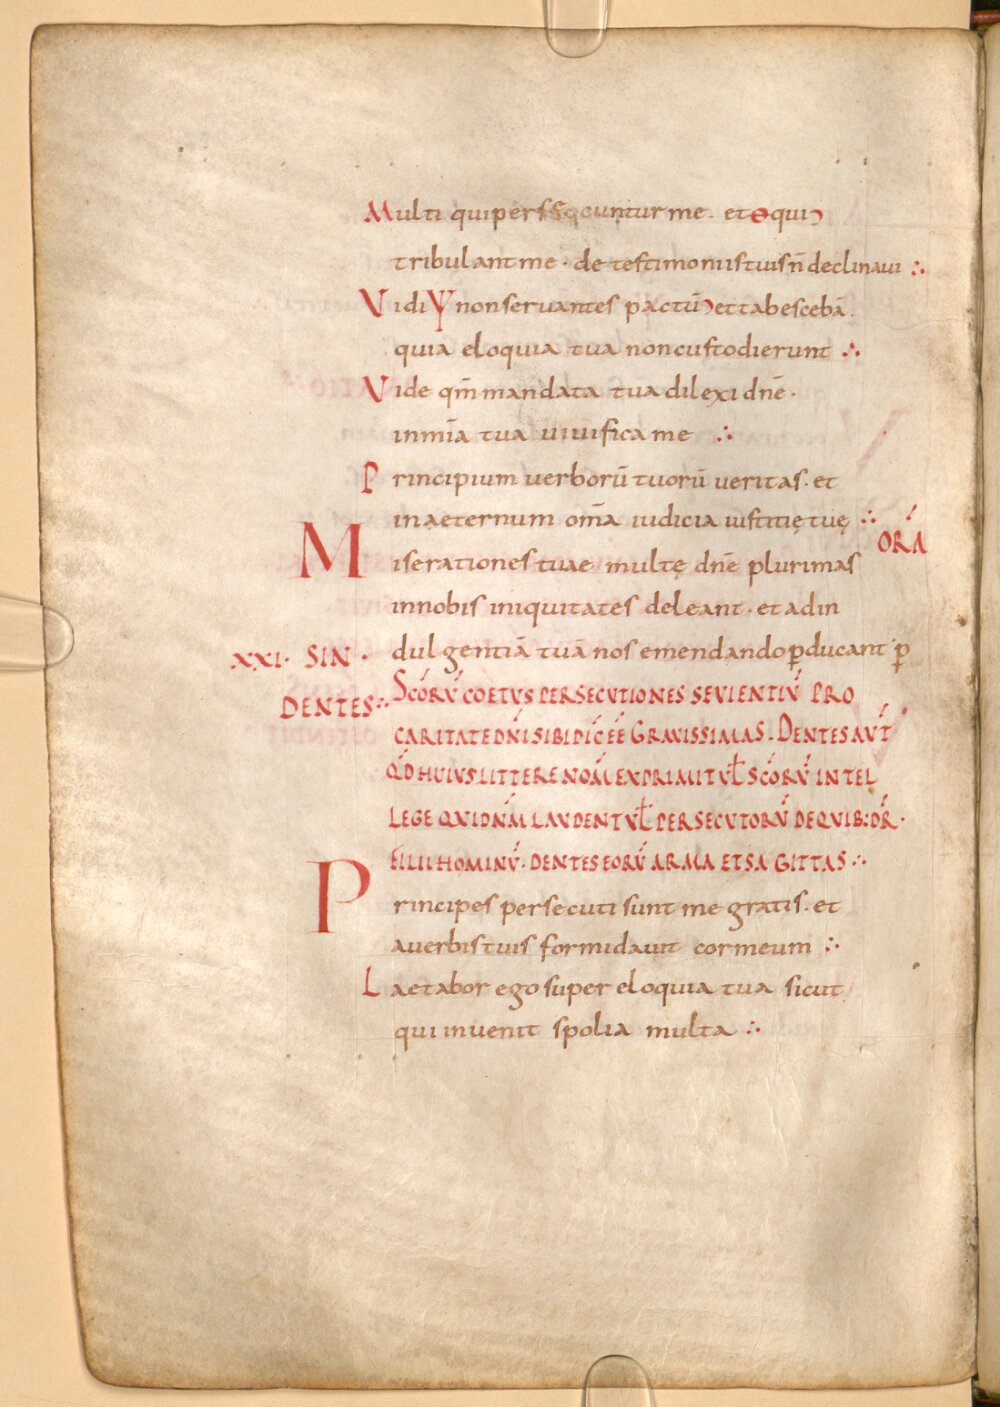 Multi qui persequuntur me · et ɵ qui
tribulant me · de testimoniis tuis n̄ declinaui ∴
Vidi Ψ non seruantes pactū et tabescebā ·
quia eloquia tua non custodierunt ∴
Vide qm̄ mandata tua dilexi dn̄e ·
in mīa tua uiuifica me ∴
Principium uerborū tuorū ueritas · et
in aeternum om̄a iudicia iustitię tuę ∴
ORA
Miserationes tuae multę dn̄e plurimas
in nobis iniquitates deleant · et ad in
XXI · SIN · dulgentiā tuā nos emendando ꝑducant ꝑ
DENTES ∴ SCŌRŪ COETUS PERSECUTIONES SEUIENTIŪ PRO
CARITATE DN̄I SIBI DIC̄ ĒE GRAUISSIMAS · DENTES AUT̄
QD̄ HUIUS LITTERE NOM̄ EXPRIMIT UƗ SCŌRŪ INTEL
LEGE QUI DN̄M LAUDENT UƗ PERSECUTORŪ DE QUIB: DR̄ ·
FILII HOMINŪ · DENTES EORŪ ARMA ET SAGITTAS ∴
Principes persecuti sunt me gratis · et
a uerbis tuis formidauit cor meum ∴
Laetabor ego super eloquia tua sicut
qui inuenit spolia multa ∴